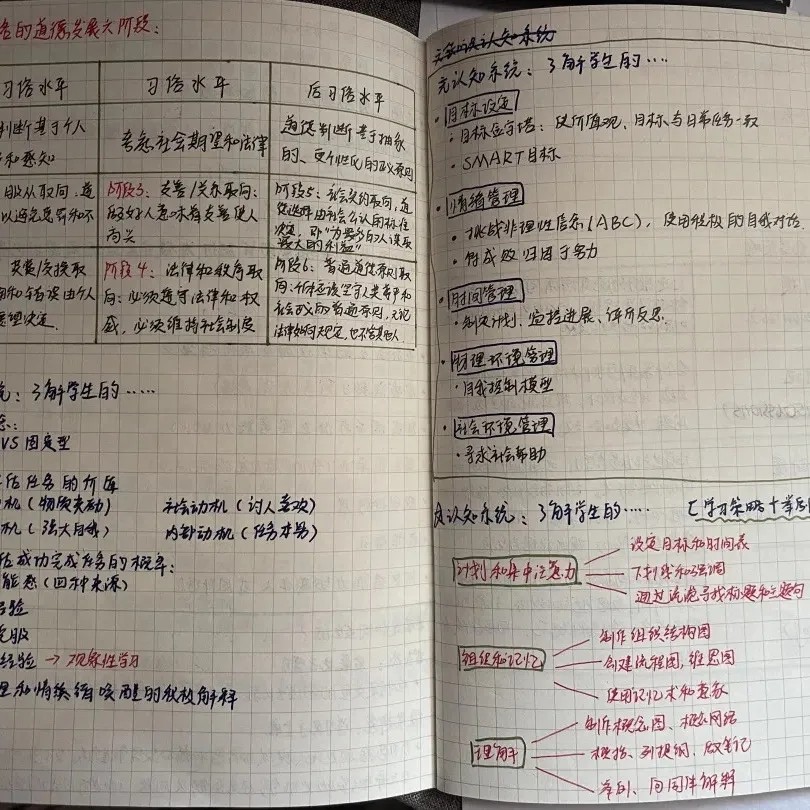 的道德发展六阶段:
习俗水平
习俗水平
后习俗水平
判断基于个人
和感知
考虑社会期望和法律
道德判断基于抽象
的、更个性化的正义原则
服从取向:道
以避免惩罚和不
阶段3:友善/关系取向:
做好人意味着友善使人
高兴
阶段5:社会契约取向,道
德选择由社会公认的标准
决定,即“为最多的人谋取
最大的利益”
交换取
和错误由个
决定.
阶段4:法律和秩序取
向:必须遵守法律和权
威,必须维持社会制度
阶段6:普遍道德原则取
向:
法律如何规定,也不
:了解学生的·····
VS 固定型
估任务的价值
机(物质奖励)
社会动机(讨人喜欢)
机(强大自我)
内部动机(任务本身)
估成功完成任务的概率:
能感(四种来源)
经验
说服
经验 → 观察性学习
理和情绪唤醒的积极解释
元认知系统
元认知系统:了解学生的····
·目标设定
·目标金字塔:使价值观、目标与日常任务一致
·SMART目标
·情绪管理
·挑战非理性信念(ABC),使用积极的自我对话.
·将成败归因于努力
·时间管理
·制定计划、监控进展、评价反思.
·物理环境管理
·自我控制模型
·社会环境管理
·寻求社会帮助
认知系统:了解学生的·····
[学习策略+
计划和集中注意力
设定目标和时间表
下划线和强调
通过浏览寻找标题和主题句
组织和记忆
制作组织结构图
创建流程图,维恩图
使用记忆术和意象
理解
制作概念图、概念网络
概括、列提纲、做笔记
举例、向同伴解释